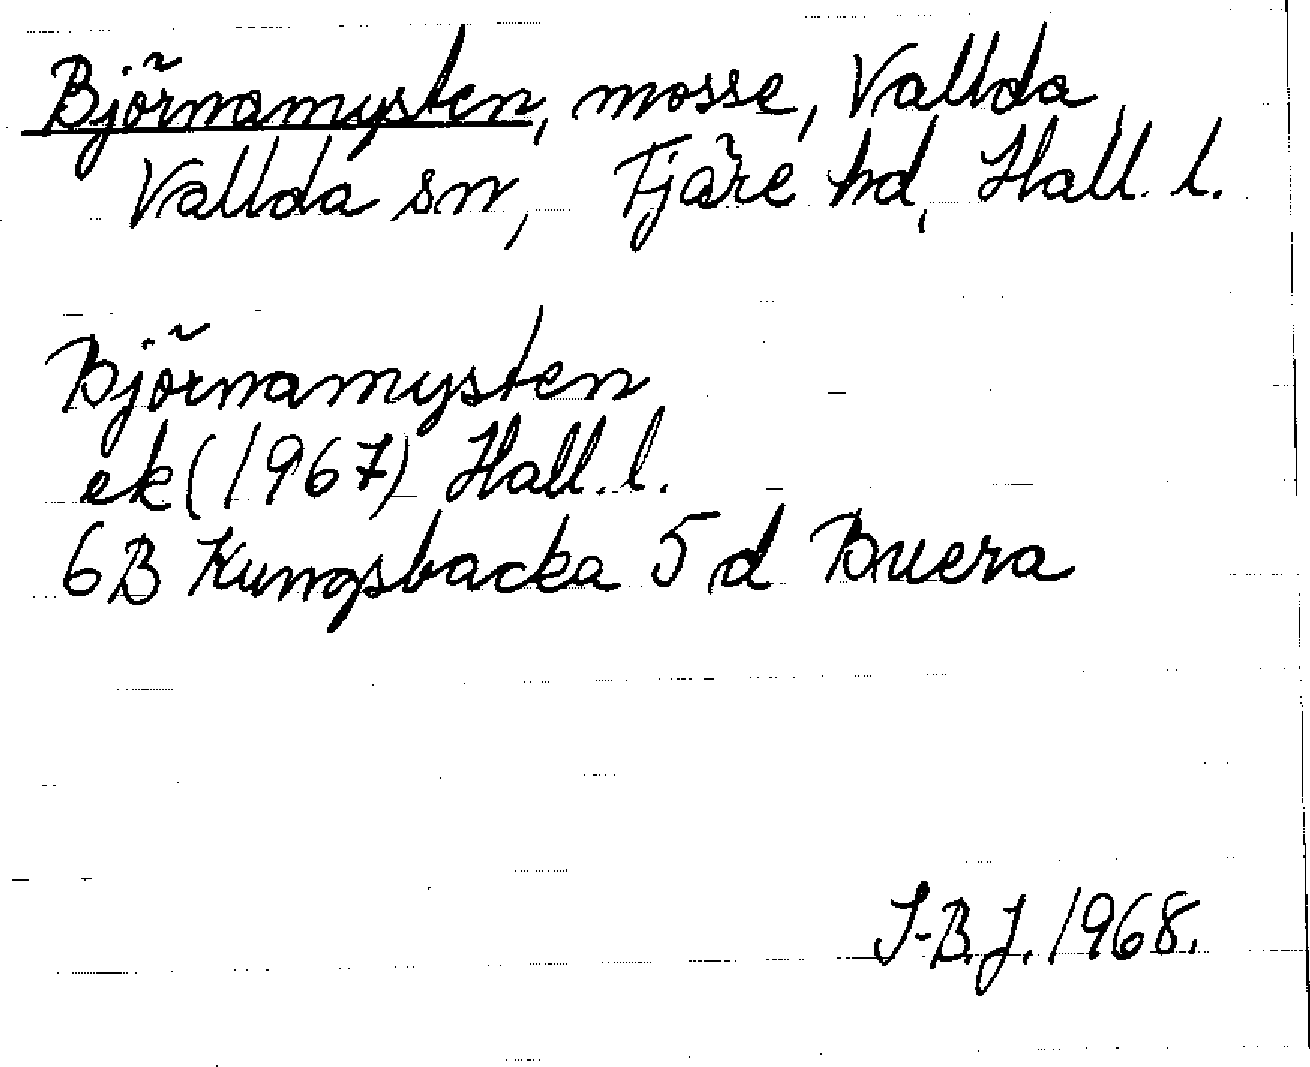 Björnamysten, mosse, Vallda,
Vallda sn, Fjäre hd, Hall. l.
Björnamysten
ek (1967) Hall. l.
6B Kungsbacka 5 d Buera
I-B.J. 1968.